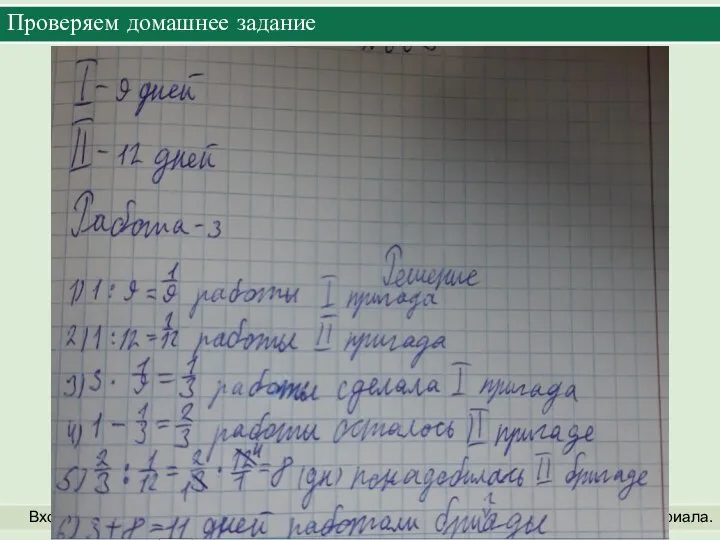 Проверяем домашнее задание
I - 9 дней
II - 12 дней
Работа - 3
Решение
1) 1 : 9 = 1/9 работы I пригада
2) 1 : 12 = 1/12 работы II пригада
3) 3 · 1/9 = 1/3 работы сделала I пригада
4) 1 - 1/3 = 2/3 работы осталось II пригаде
5) 2/3 : 1/12 = 2/3 · 12/1 = 8 (дн) понадобилась II бригаде
6) 3 + 8 = 11 дней работали бригады